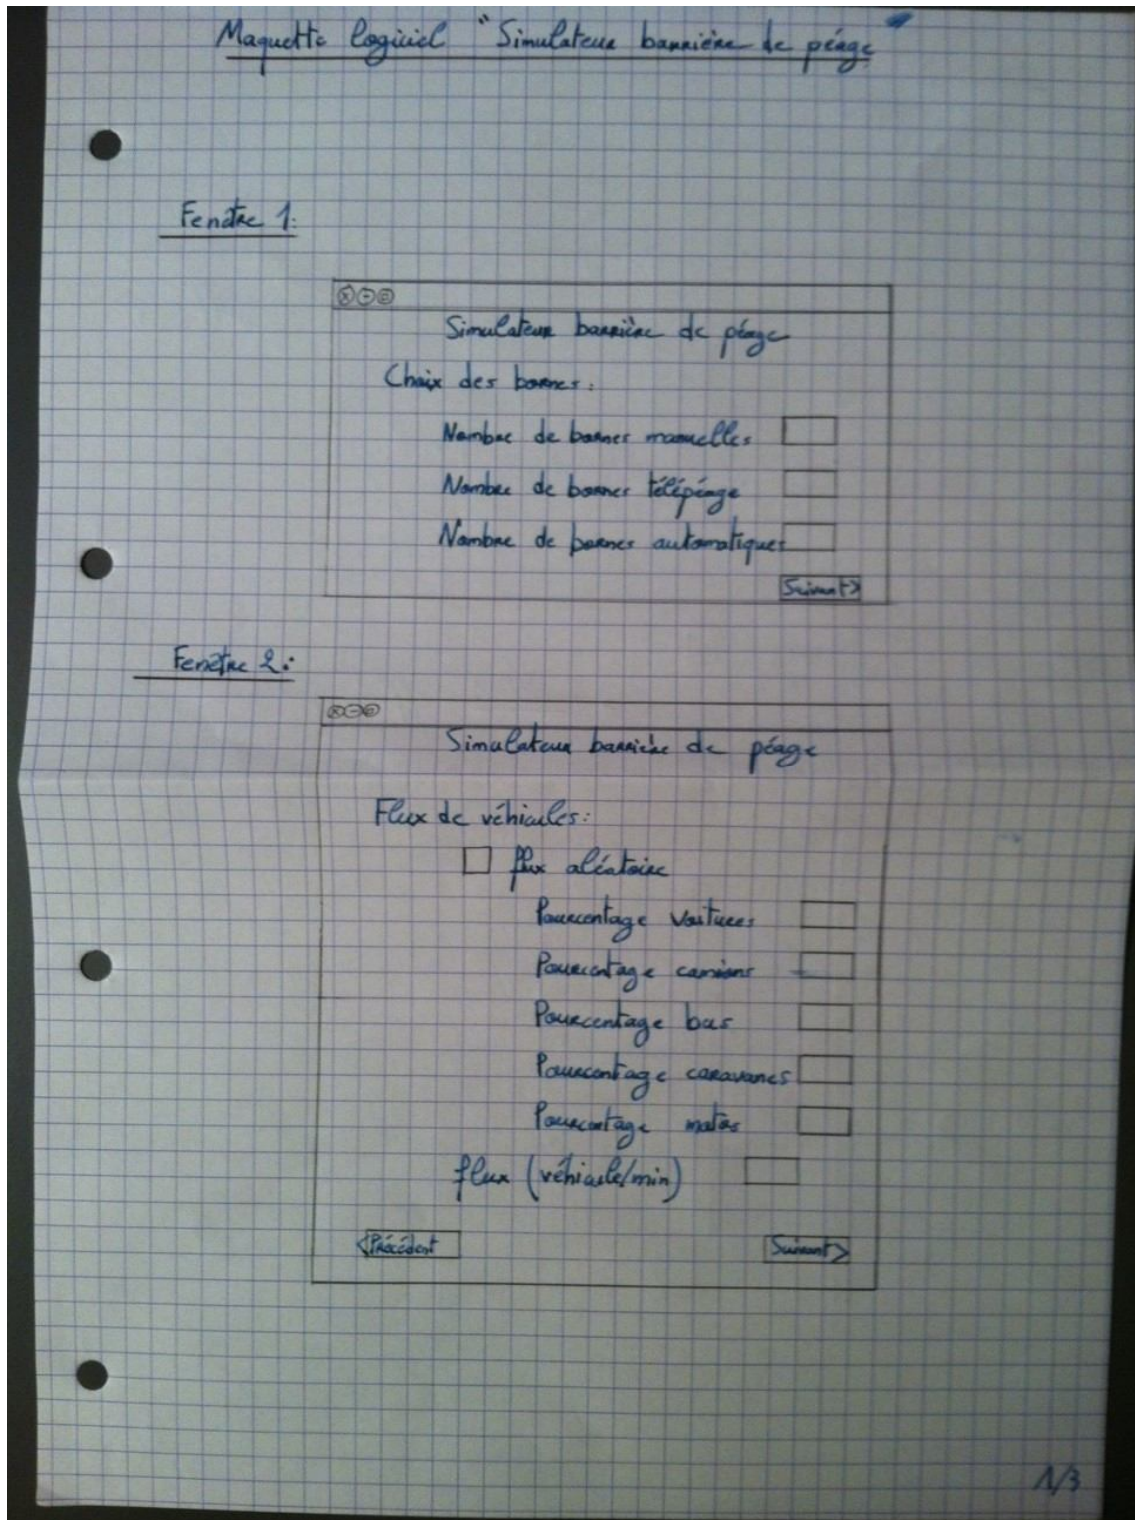 Maquette logiciel "Simulateur barrière de péage"
Fenêtre 1:
Simulateur barrière de péage
Choix des bornes:
Nombre de bornes manuelles
Nombre de bornes télépéage
Nombre de bornes automatiques
Suivant>
Fenêtre 2:
Simulateur barrière de péage
Flux de véhicules:
flux aléatoire
Pourcentage voitures
Pourcentage camions
Pourcentage bus
Pourcentage caravanes
Pourcentage motos
flux (véhicule/min)
<Précédent
Suivant>
1/3